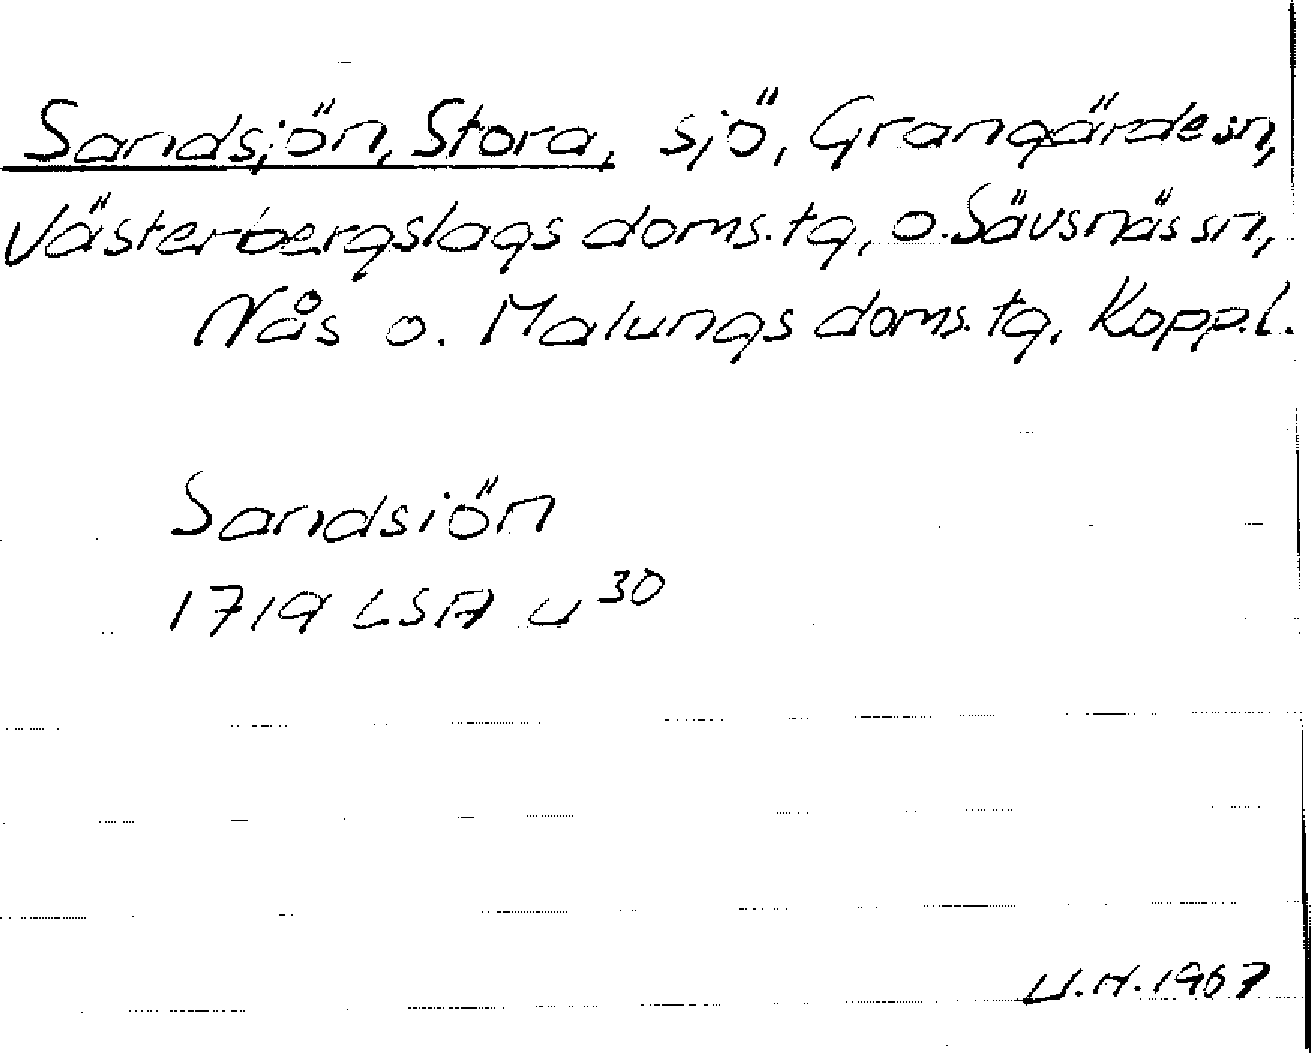 Sandsjön, Stora, sjö, Grangärde sn,
Västerbergslags doms. tg, o. Sävsnäs sn,
Nås o. Malungs doms. tg, Kopp. l.
Sandsiön
1719 LSA u30
U.H. 1967